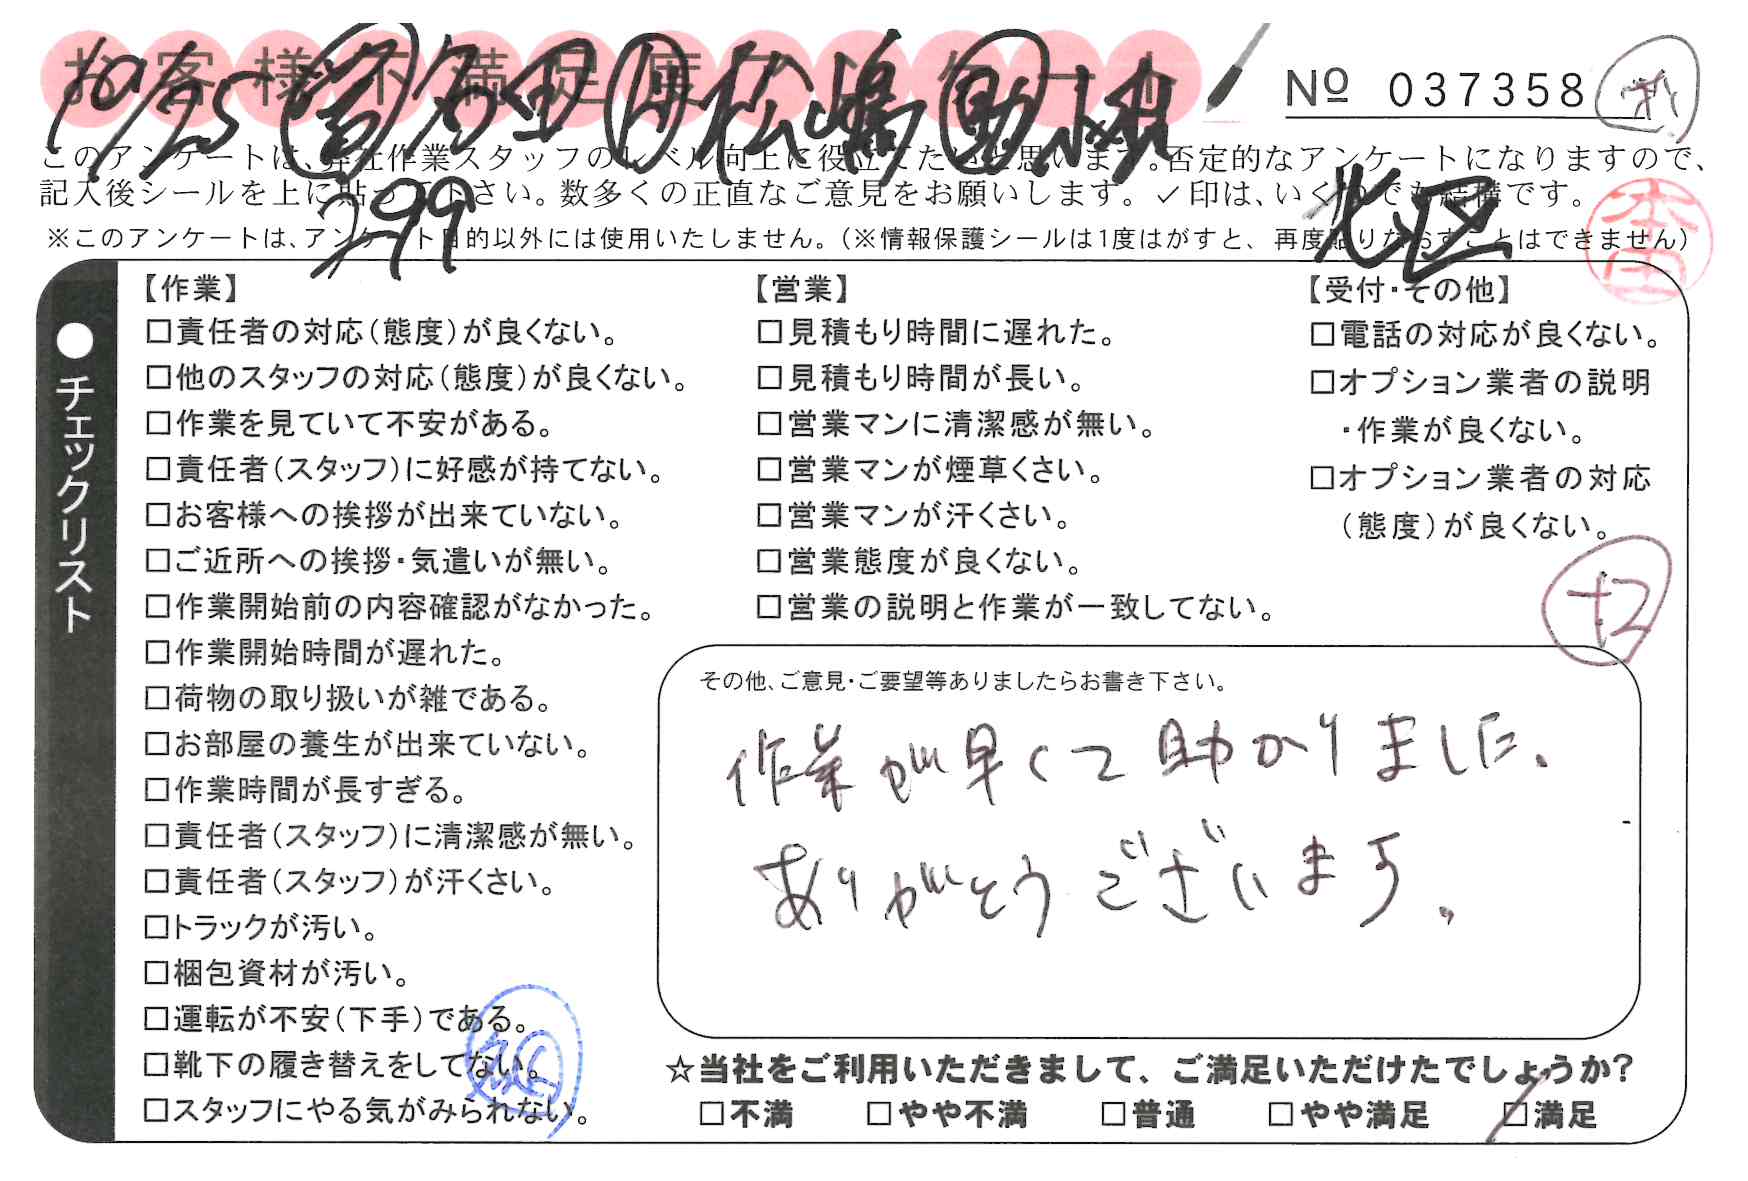 お客様不満足度アンケート
№ 037358
10/25 多田 松嶋 助 小林
このアンケートは、弊社作業スタッフのレベル向上に役立てたいと思います。否定的なアンケートになりますので、
記入後シールを上に貼って下さい。数多くの正直なご意見をお願いします。✓印は、いくつでも結構です。
299
北区
※このアンケートは、アンケート目的以外には使用いたしません。(※情報保護シールは1度はがすと、再度貼りなおすことはできません)
●チェックリスト
【作業】
□責任者の対応(態度)が良くない。
□他のスタッフの対応(態度)が良くない。
□作業を見ていて不安がある。
□責任者(スタッフ)に好感が持てない。
□お客様への挨拶が出来ていない。
□ご近所への挨拶・気遣いが無い。
□作業開始前の内容確認がなかった。
□作業開始時間が遅れた。
□荷物の取り扱いが雑である。
□お部屋の養生が出来ていない。
□作業時間が長すぎる。
□責任者(スタッフ)に清潔感が無い。
□責任者(スタッフ)が汗くさい。
□トラックが汚い。
□梱包資材が汚い。
□運転が不安(下手)である。
□靴下の履き替えをしてない。
□スタッフにやる気がみられない。
【営業】
□見積もり時間に遅れた。
□見積もり時間が長い。
□営業マンに清潔感が無い。
□営業マンが煙草くさい。
□営業マンが汗くさい。
□営業態度が良くない。
□営業の説明と作業が一致してない。
【受付・その他】
□電話の対応が良くない。
□オプション業者の説明
・作業が良くない。
□オプション業者の対応
(態度)が良くない。
その他、ご意見・ご要望等ありましたらお書き下さい。
作業が早くて助かりました。
ありがとうございます。
☆当社をご利用いただきまして、ご満足いただけたでしょうか?
□不満 □やや不満 □普通 □やや満足 □満足